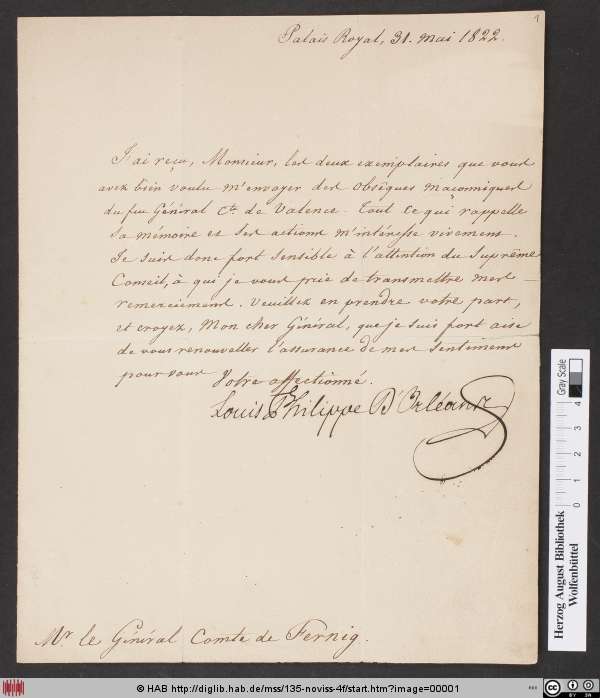 1
Palais Royal, 31. Mai 1822.
J'ai reçu, Monsieur, les deux exemplaires que vous
avez bien voulu m'envoyer des obsèques maçonniques
du feu Général Cte. de Valence. Tout ce qui rappelle
sa mémoire et ses actions m'intéresse vivement.
Je suis donc fort sensible à l'attention du Suprême
Conseil, à qui je vous prie de transmettre mes
remerciemens. Veuillez en prendre votre part,
et croyez, Mon cher Général, que je suis fort aise
de vous renouveller l'assurance de mes sentimens
pour vous
Votre affectionné.
Louis Philippe D'Orléans
Mr. le Général Comte de Fernig.
Herzog August Bibliothek
Wolfenbüttel
0 1 2 3 4
Gray Scale
© HAB http://diglib.hab.de/mss/135-noviss-4f/start.htm?image=00001
cc BY SA